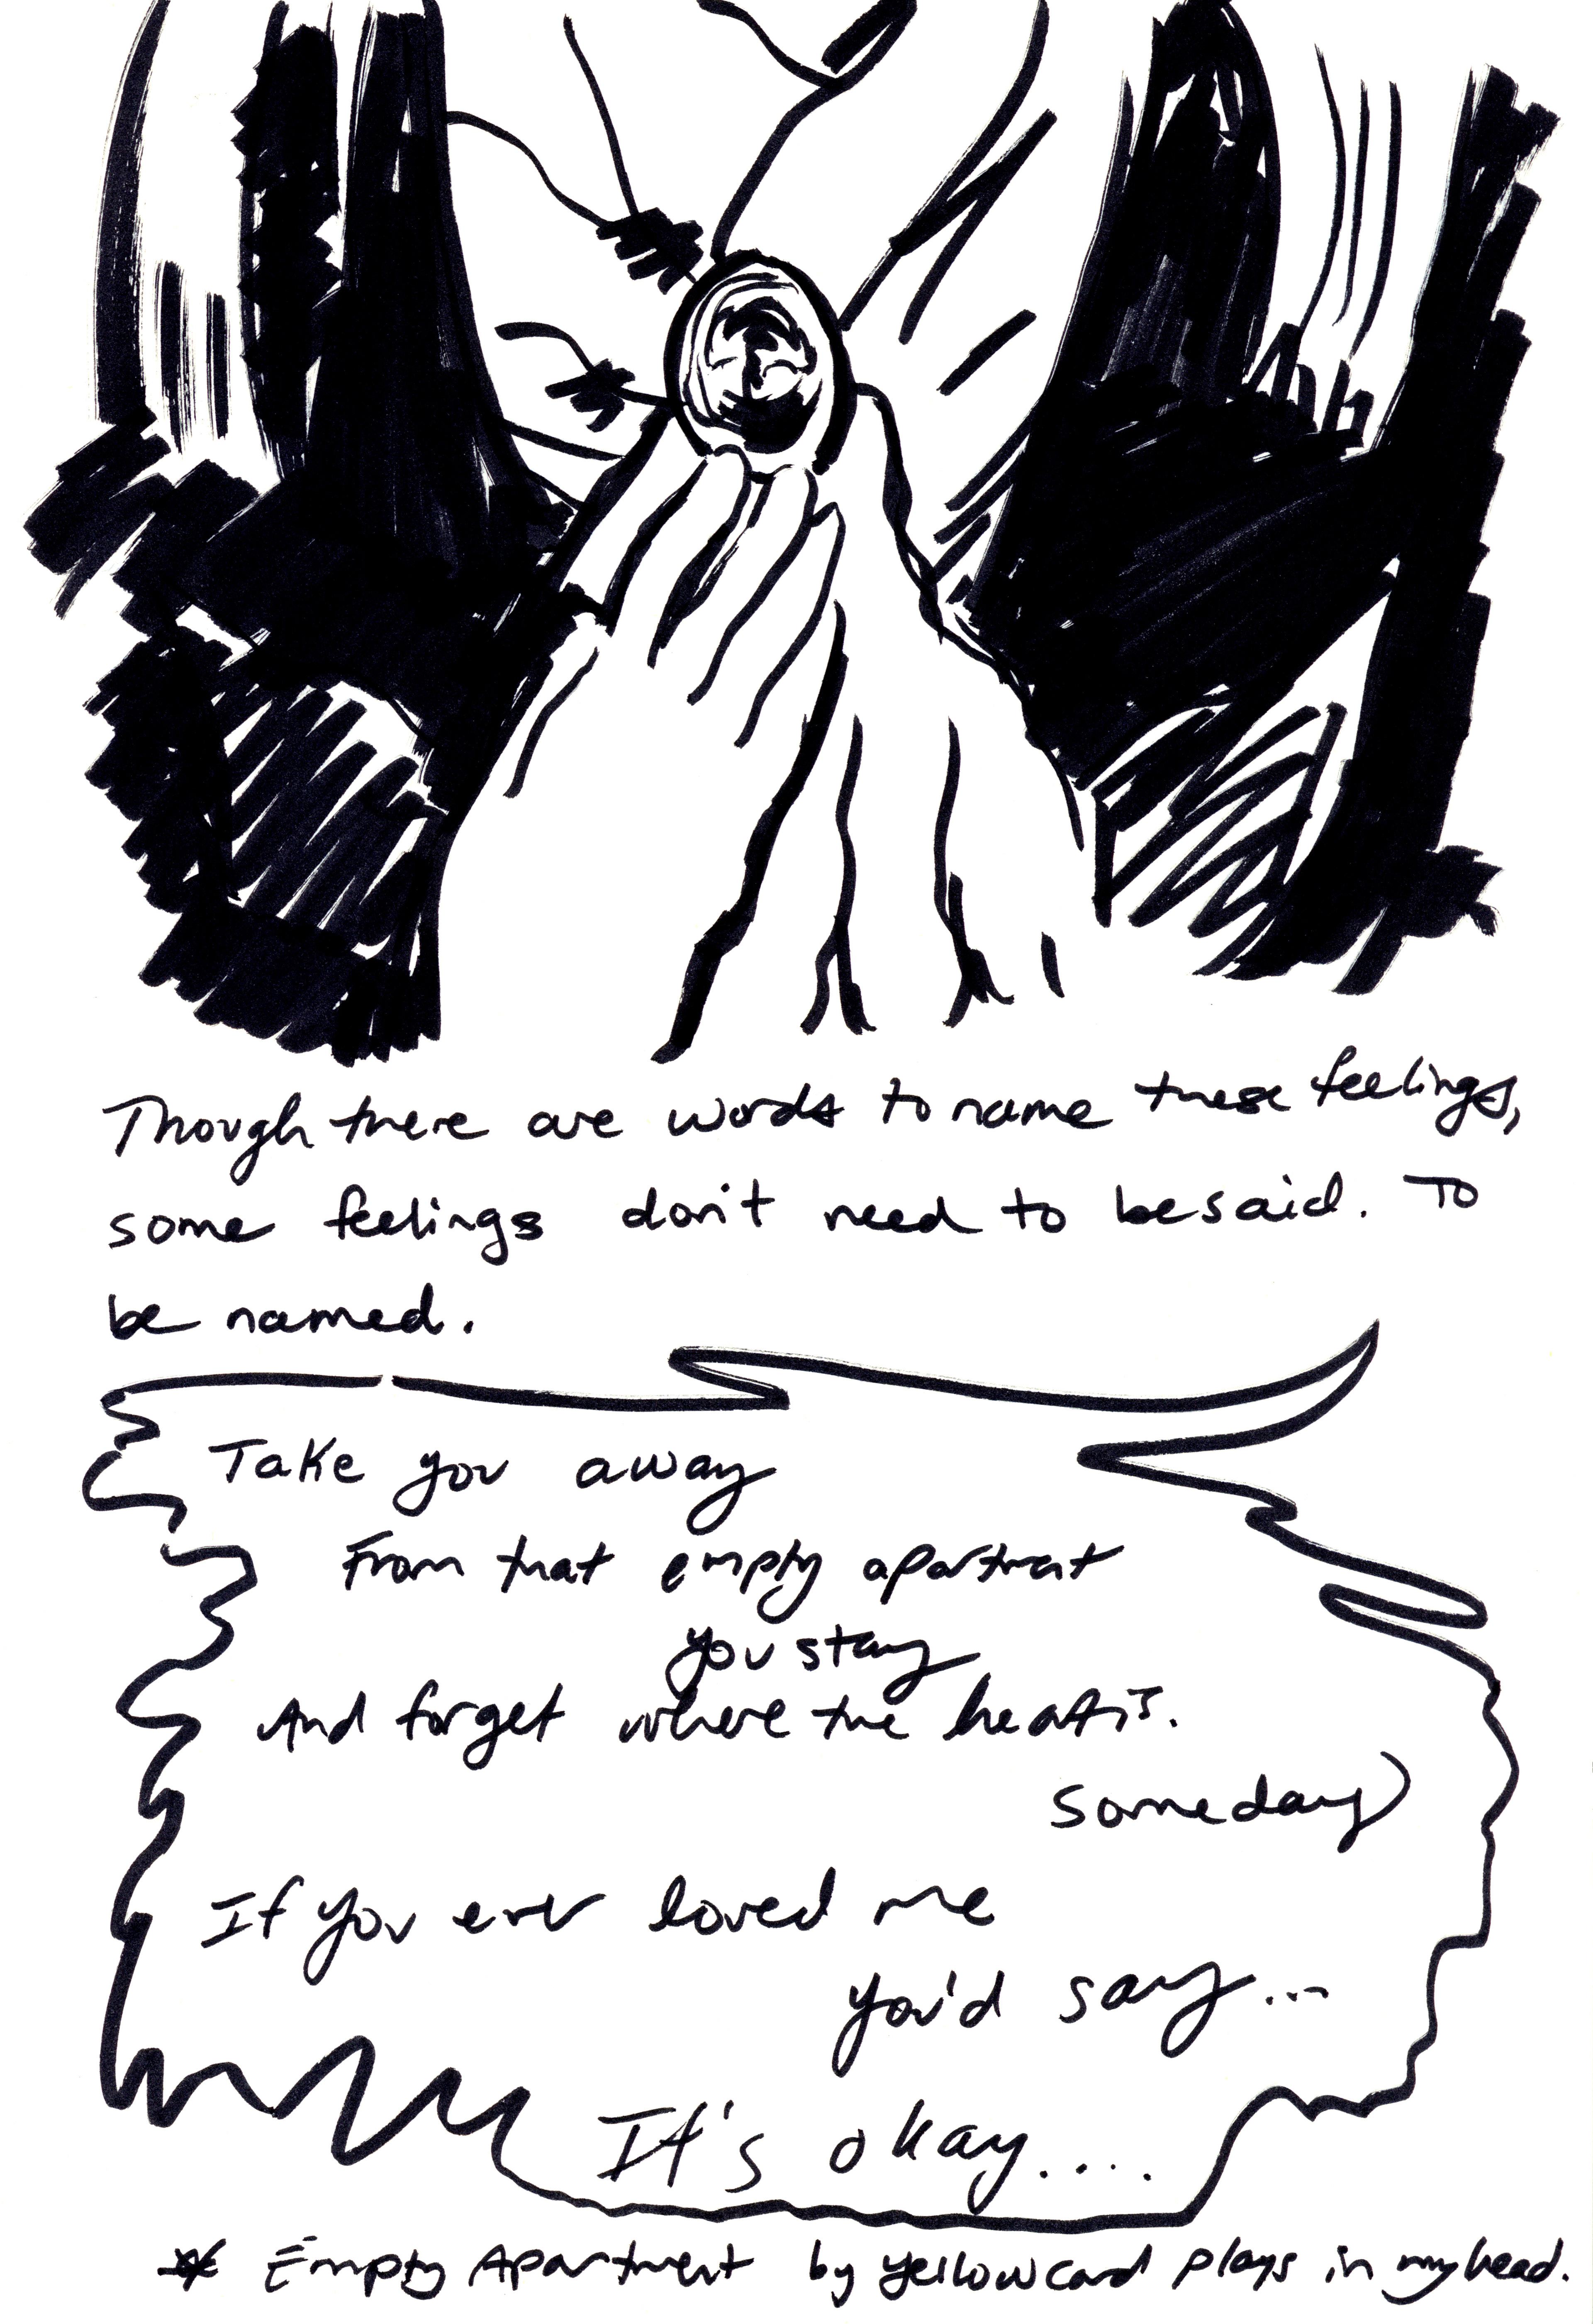 Though there are words to name these feelings,
some feelings don't need to be said. To
be named.
Take you away
From that empty apartment
you stay
And forget where the heart is.
someday
If you ever loved me
you'd say...
It's okay....
* Empty Apartment by Yellowcard plays in my head.